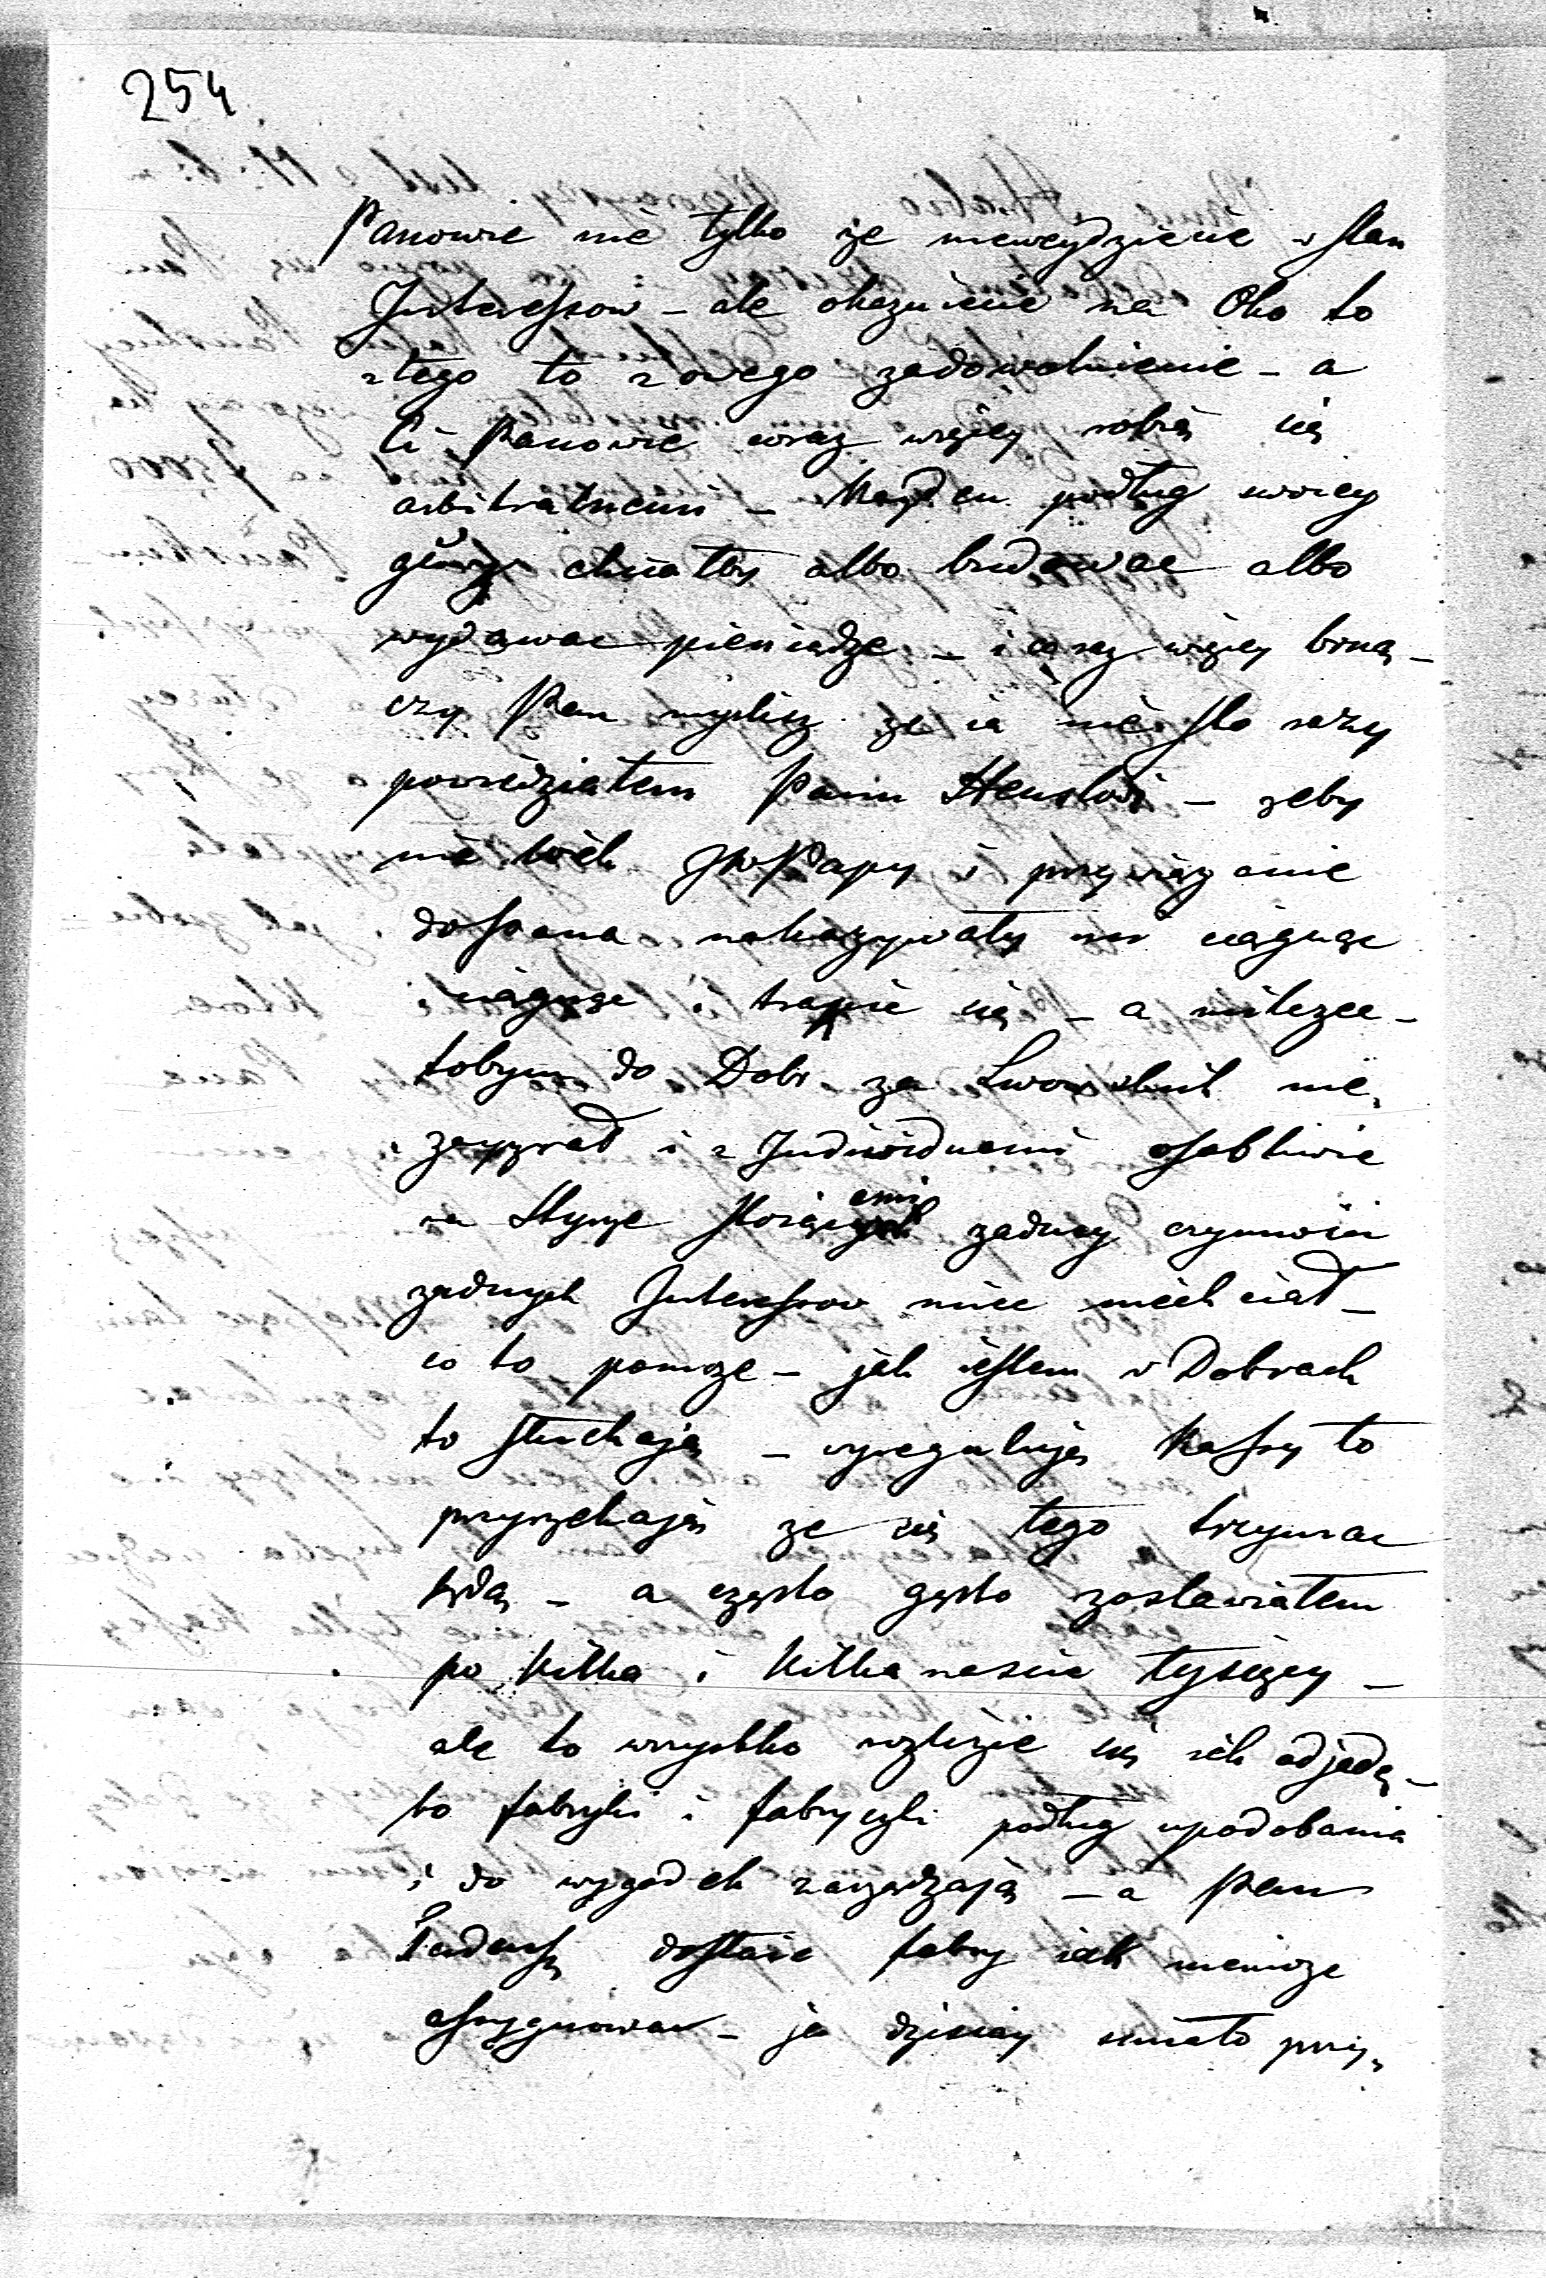 254
Panowie nie tylko że niewejdziecie w stan
Interessow – ale okazuiecie na Oko to
z tego to z owego zadowolnienie – a
Ci Panowie coraz więcey robią się
arbitralnemi – Każden podług swoiey
głowy chciałby albo budowac albo
wydawac pieniądze – i coraz więcey brną –
czy Pan myślisz że ia nie sto razy
powiedziałem Panu – zeby
nie JWPapy i przywiązanie
do Pana nakazywały mi ciągnąc
i ciągnąc i trapic się – a milczec –
tobym do Dobr za Lwowskich nie,
zayzrał i z Individuami osobliwie
na Stryze stoiącemi zadney czynnosci
zadnych Interessow miec niechciał –
co to pomoze – jak iestem w Dobrach
to słuchają – wyregulują Kassy to
przyrzekają ze się tego trzymac
będą – a często gęsto zostawiałem
po kilka i kilkanascie tysięcy –
ale to wszystko rozlizie się iek odjadę –
to fabryki i fabryczki podług upodobania
i do wygodek zarządzają – a Pan
Tadeusz dostaie fabry iak niemoze
assygnowac – ja dzisiay smiało przy,